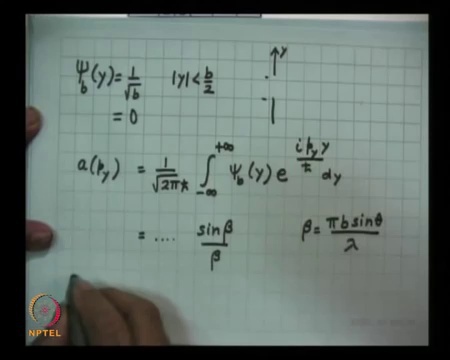 ψ_b(y) = 1/√b |y| < b/2 ↑y
= 0
a(p_y) = 1/√(2πħ) ∫_{-∞}^{+∞} ψ_b(y) e^{i p_y y/ħ} dy
= .... sinβ/β β = πb sinθ/λ
NPTEL